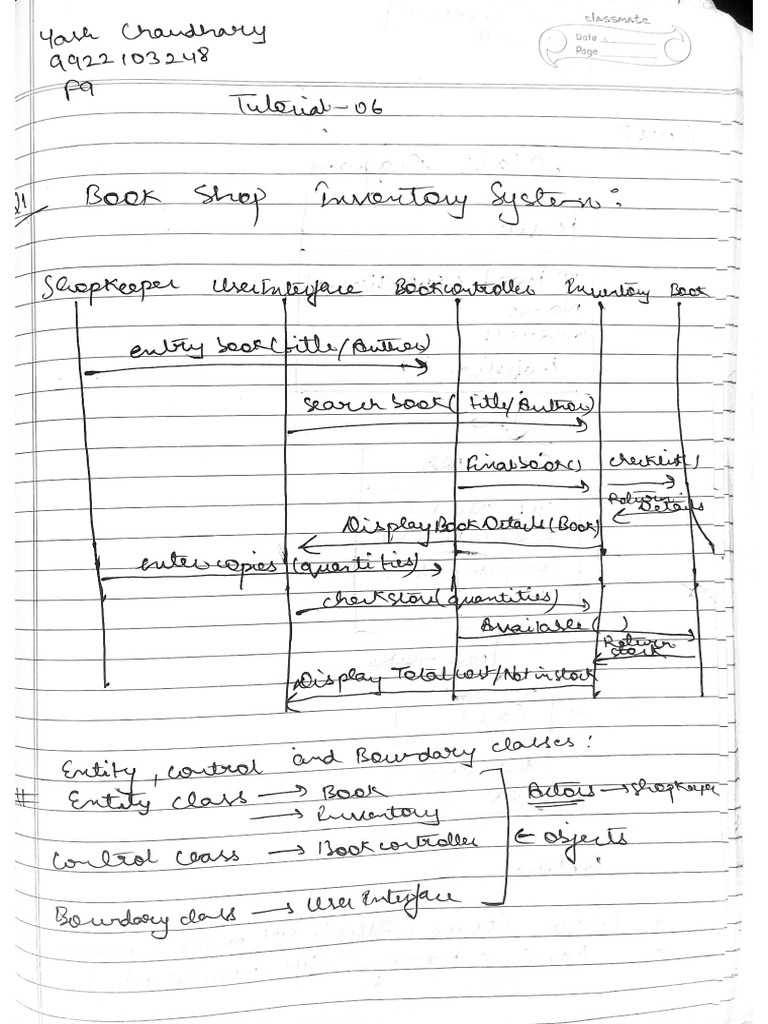 classmate
Date
Page
Yash Chaudhary
9922103248
F9
Tutorial-06
Q1 Book Shop Inventory System:
Shopkeeper UserInterface Bookcontroller Inventory Book
entry book(title/Author)
search book( title/Author)
Finalbook() checklist()
Return Details
DisplayBookDetails(Book)
enter copies (quantities)
check store(quantities)
Available( )
Return stock
Display Total cost/Not in stock
Entity, control and Boundary classes:
# Entity class → Book
→ Inventory
Actors → Shopkeeper
Control class → Bookcontroller ← objects
Boundary class → UserInterface